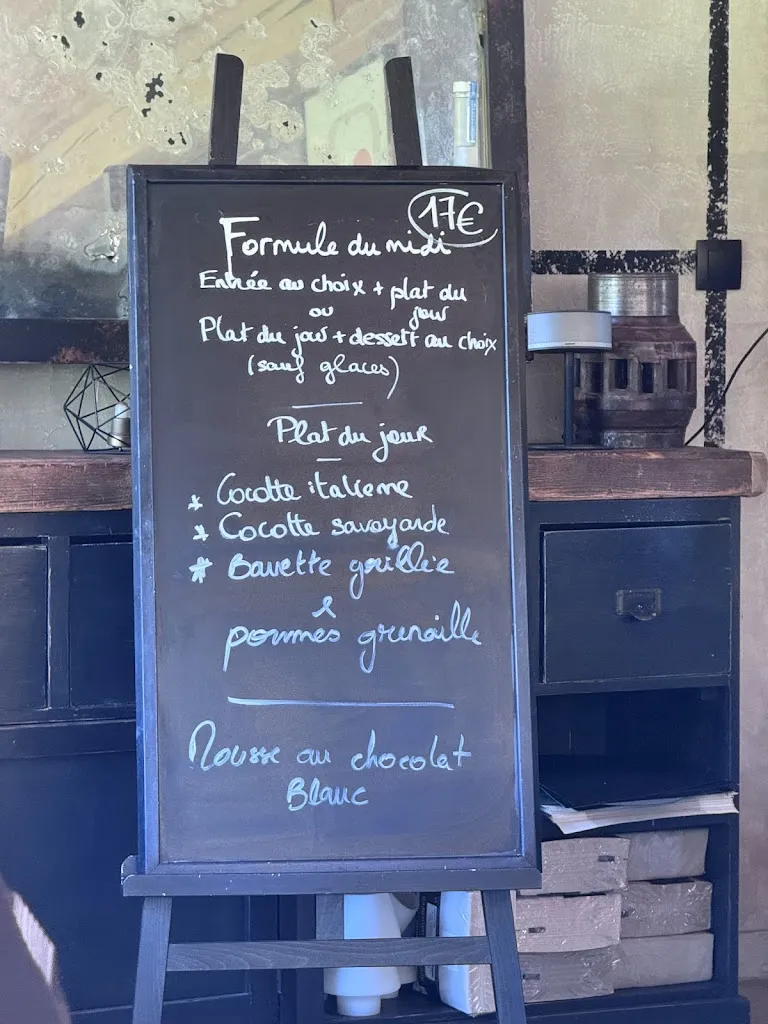 17€
Formule du midi
Entrée au choix + plat du
ou jour
Plat du jour + dessert au choix
(sauf glaces)
Plat du jour
* Cocotte italienne
* Cocotte savoyarde
* Bavette grillée
&
pommes grenaille
Mousse au chocolat
Blanc